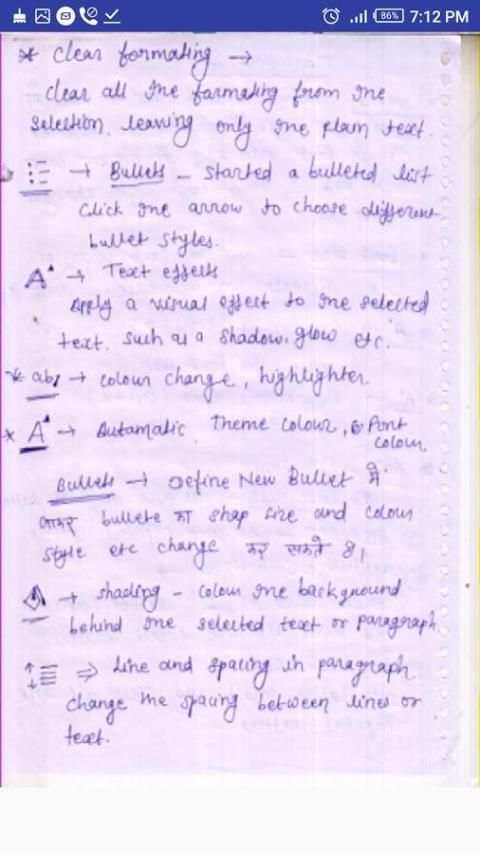 86% 7:12 PM
* Clear formating →
Clear all the formating from the
selection, leaving only the plain text.
→ Bullets - started a bulleted list
Click the arrow to choose different
bullet styles.
A → Text effects
Apply a visual effect to the selected
text. such as a shadow, glow etc.
* ab/ → colour change, highlighter.
* A → Automatic Theme colour, Font
colour
Bullets → Define New Bullet में
जाकर bullete का shap size and colour
style etc change कर सकते है।
→ shading - colour the background
behind the selected text or paragraph
⇒ Line and spacing in paragraph
change the spacing between lines or
text.